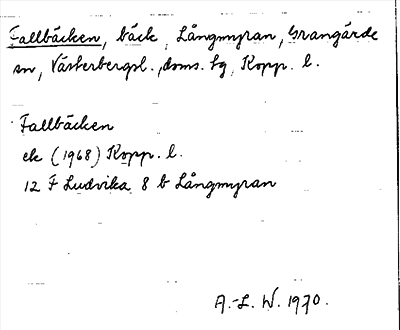 Fallbäcken, bäck, Långmyran, Grangärde
sn, Västerbergsl. doms. tg, Kopp. l.
Fallbäcken
ek (1968) Kopp. l.
12 F Ludvika 8 b Långmyran
A.-L. W. 1970.